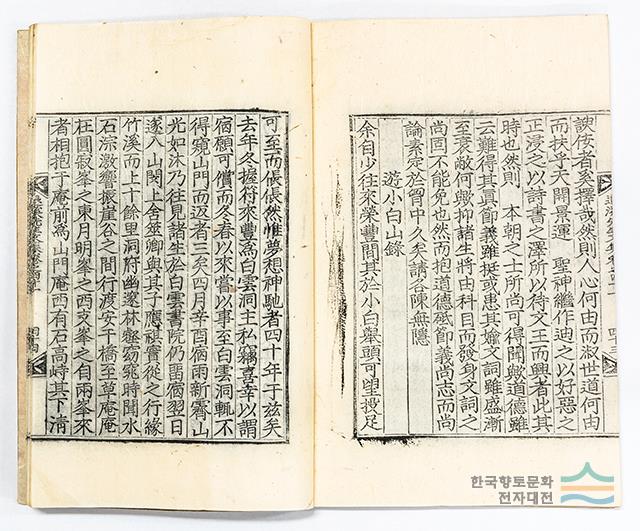 諛佞者奚擇哉然則人心何由而淑世道何由
而扶乎天開景運 聖神繼作迪之以好惡之
正浸之以詩書之澤所以待文王而興者此其
時也然則 本朝之士所尚可得聞歟道德雖
云難得其眞節義雖挺或患其嬌文詞雖盛漸
至衰敝何歟抑諸生將由科目而發身文詞之
尚固不能免也然而抱道德砥節義尚志而尚
論素定於胷中久矣請各陳無隱
遊小白山錄
余自少往來榮豐間其於小白擧頭可望投足
可至而倀倀然惟夢想神馳者四十年于玆矣
去年冬握符來豐爲白雲洞主私竊喜幸以謂
宿願可償而冬春以來嘗以事至白雲洞輒不
得窺山門而返者三矣四月辛酉宿雨新霽山
光如沐乃往見諸生於白雲書院仍留宿翌日
遂入山閔上舍筮卿與其子應祺實從之行緣
竹溪而上十餘里洞府幽邃林壑窈窕時聞水
石淙激響振崖谷之間行渡安干橋至草庵庵
在圓寂峯之東月明峯之西支峯之自兩峯來
者相抱于庵前爲山門庵西有石高峙其下淸
한국향토문화
전자대전